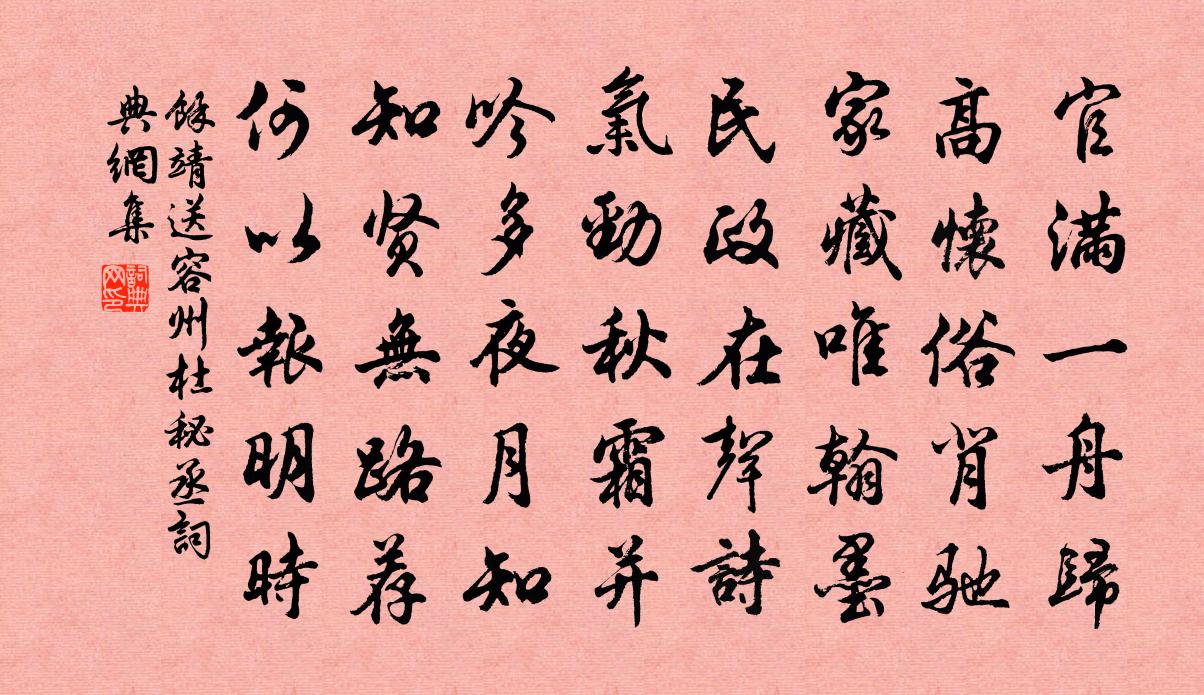 官满一舟歸
高懷俗肖馳
家藏唯翰墨
民政在聲詩
氣勁秋霜并
吟多夜月知
知贤無路荐
何以報明時
餘靖送容州杜秘丞詞
典網集
詞典网印